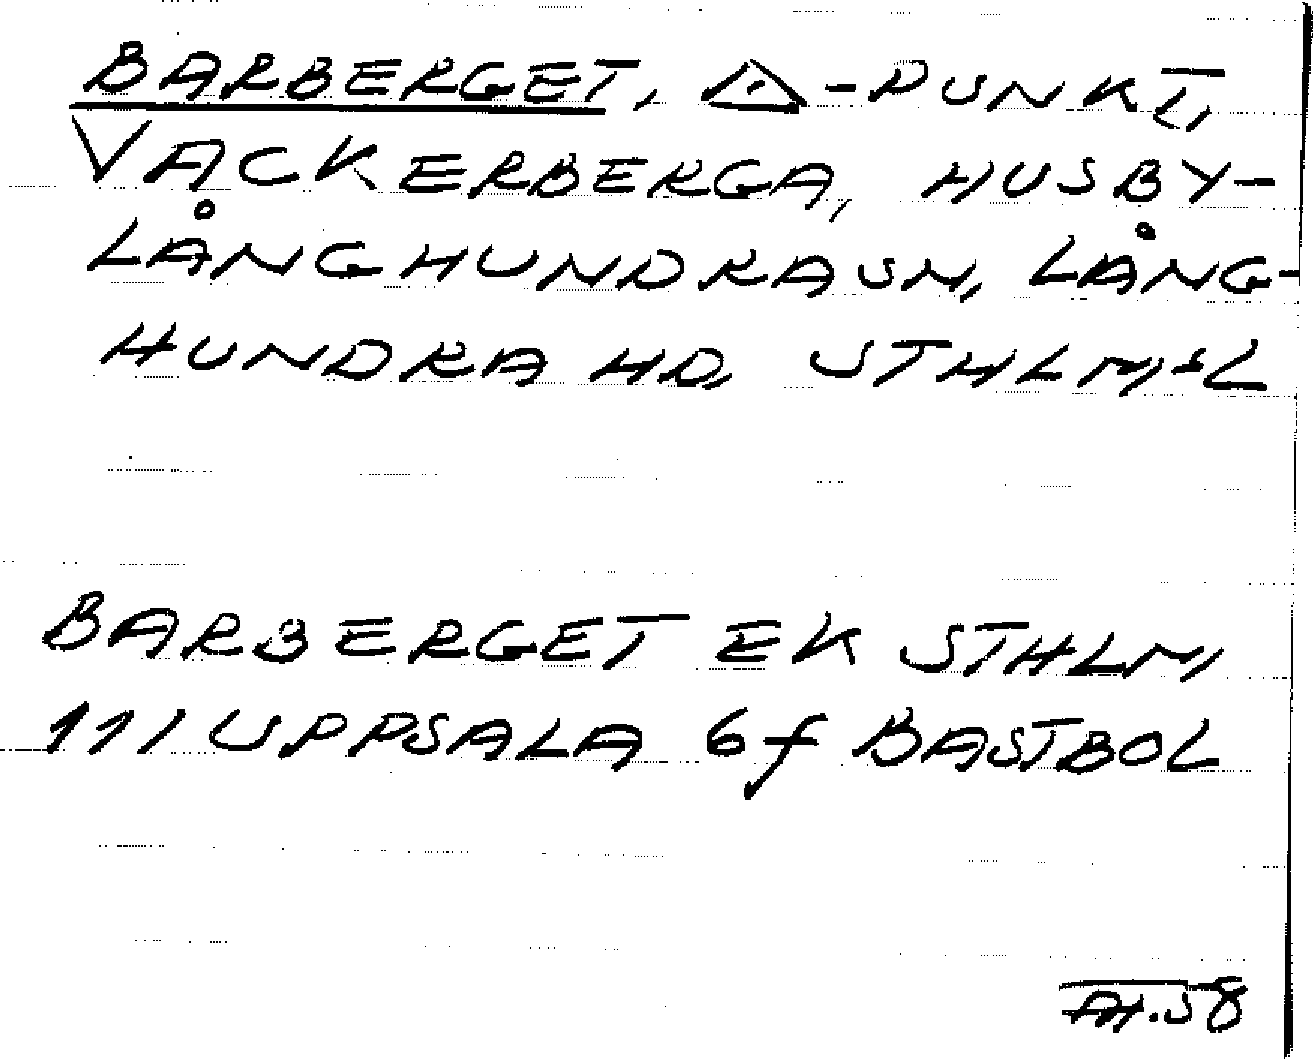 BARBERGET, △-PUNKT,
VACKERBERGA, HUSBY-
LÅNGHUNDRA SN, LÅNG-
HUNDRA HD, STHLM,S L
BARBERGET EK STHLM,
111 UPPSALA 6f BASTBOL